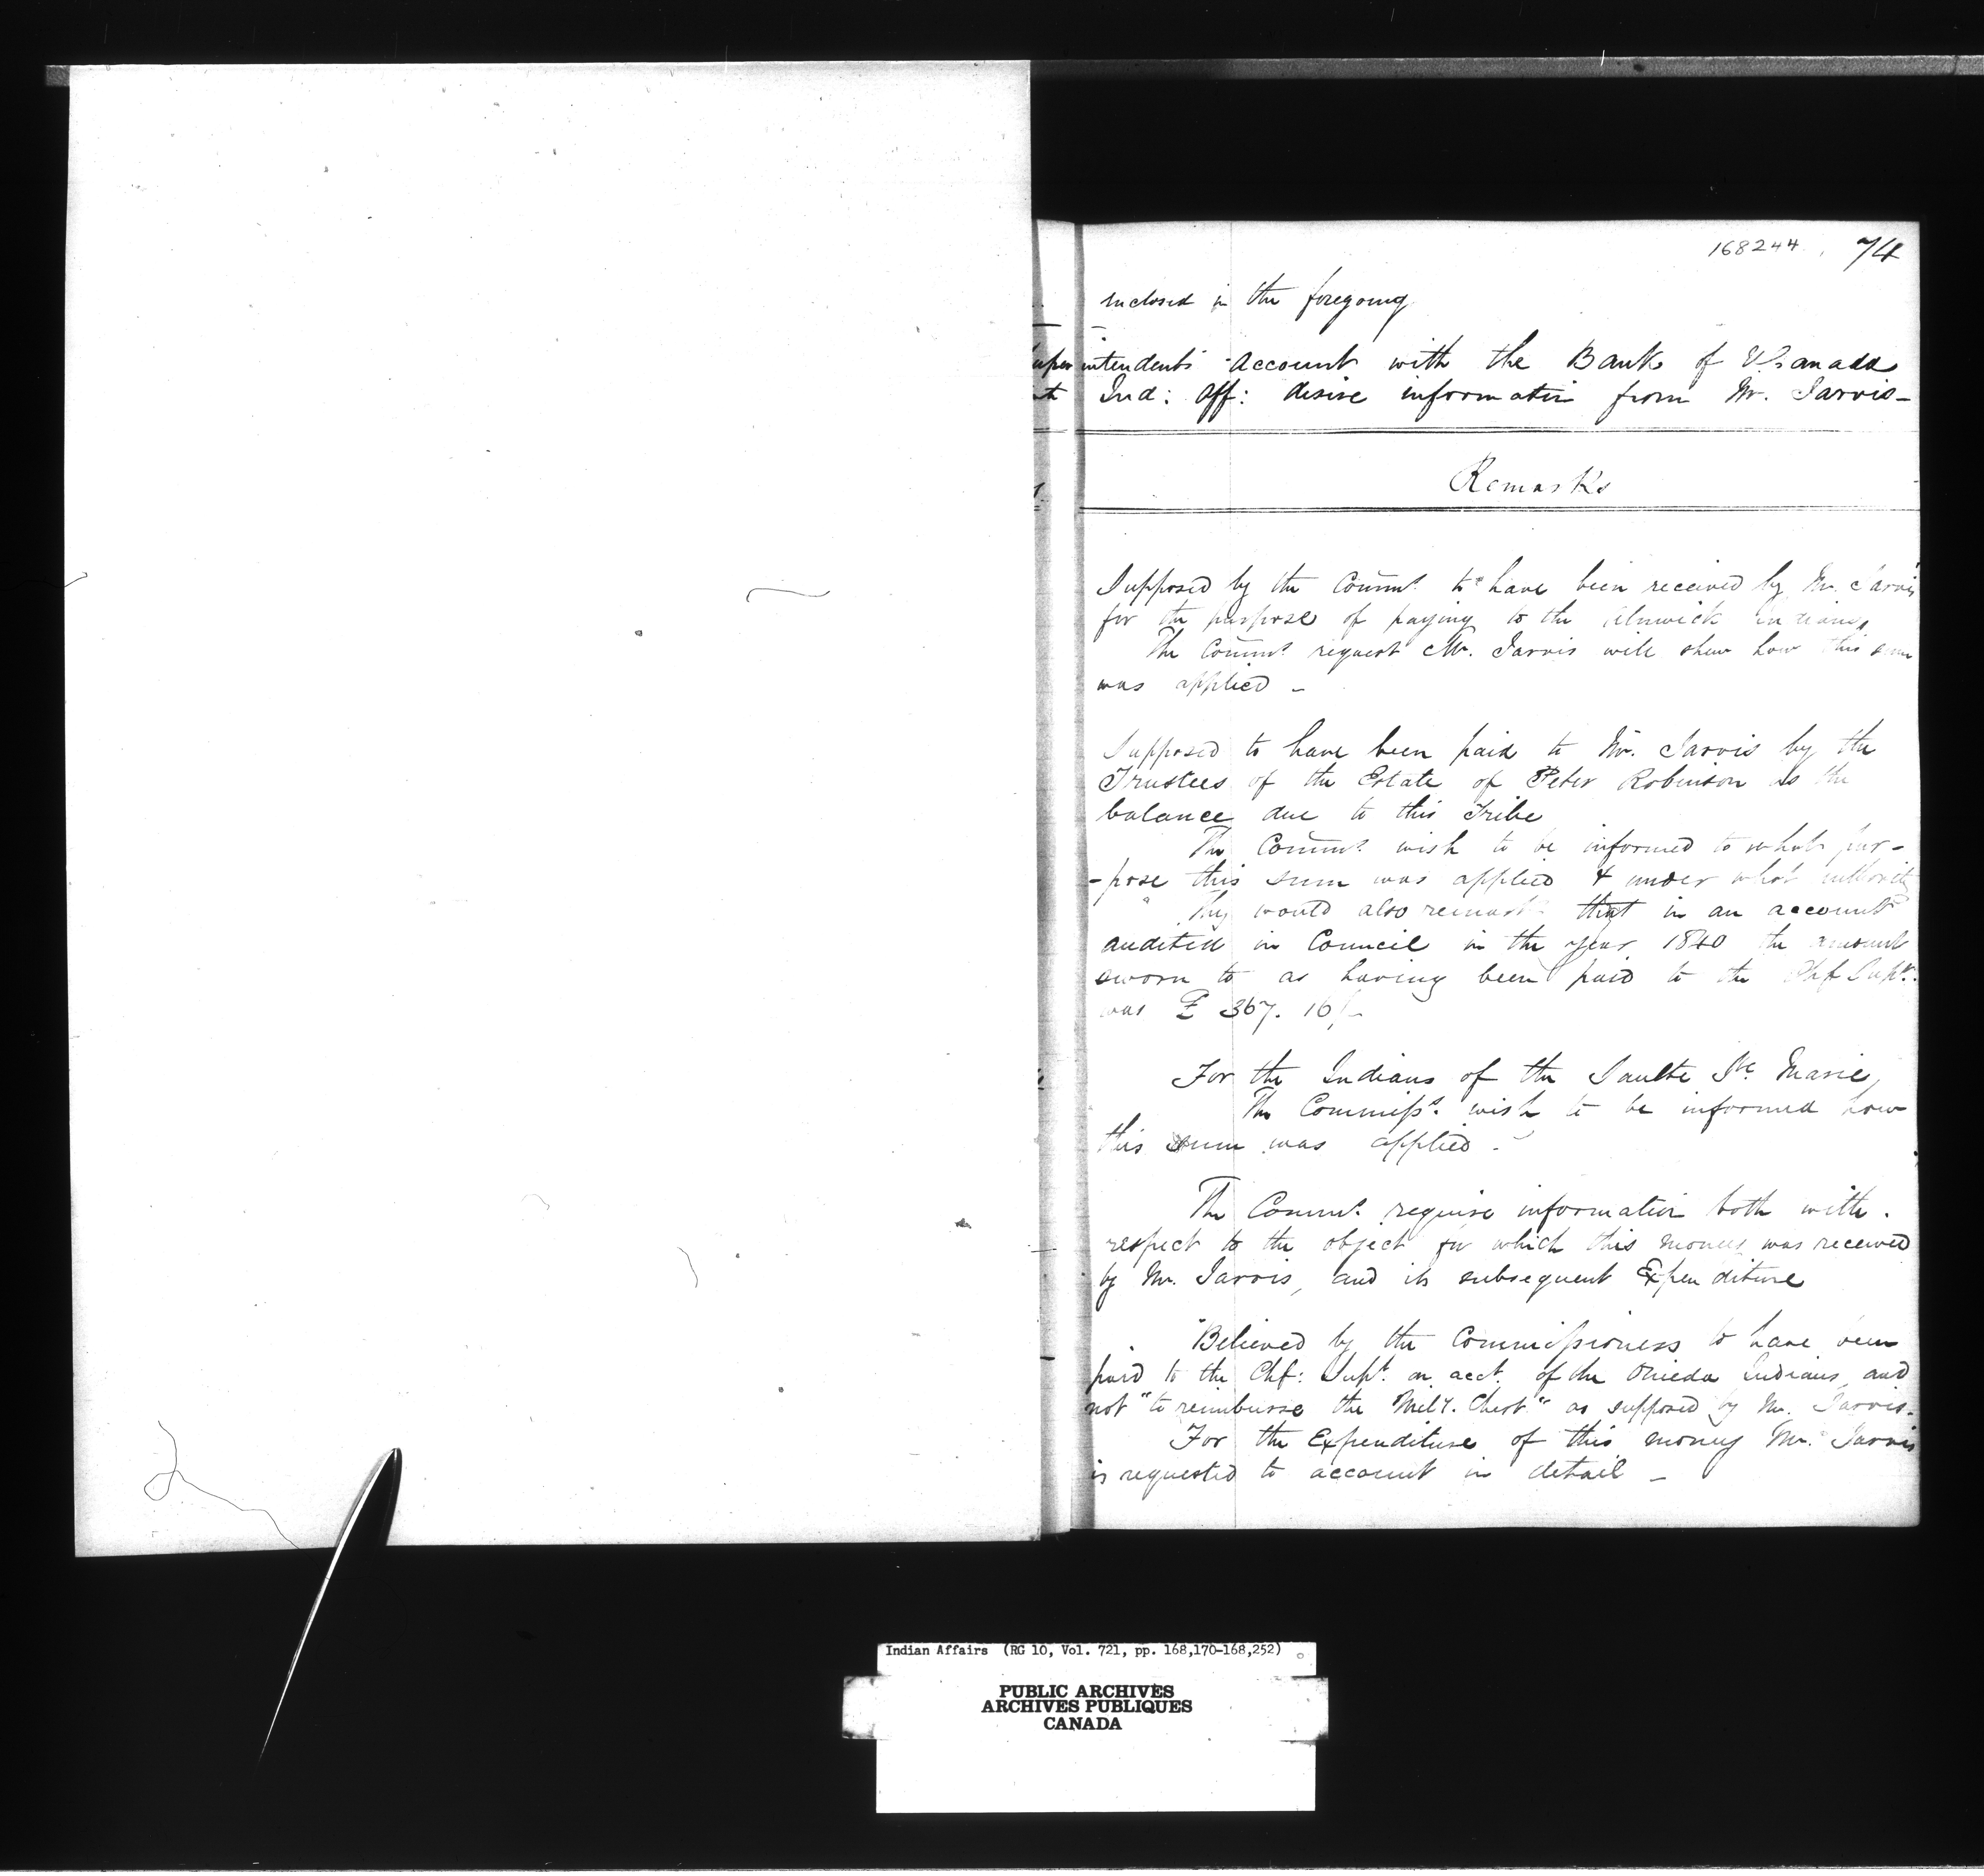 168244 74
enclosed in the foregoing
uperintendents Account with the Bank of U. Canada
Ind: Off: desire information from Mr. Jarvis-
Remarks
Supposed by the Commrs. to have been received by Mr. Jarvis
for the purpose of paying to the Alnwick Indians
The Commrs. request Mr. Jarvis will shew how this sum
was applied -
Supposed to have been paid to Mr. Jarvis by the
Trustees of the Estate of Peter Robinson as the
balance due to this Tribe
The Commrs. wish to be informed to what pur-
-pose this sum was applied & under what authority
They would also remark that in an account
audited in Council in the year 1840 the amount
sworn to as having been paid to the Chf Supt.
was £ 367. 16/-
For the Indians of the Saulte Ste. Marie,
The Commissrs. wish to be informed how
this sum was applied -
The Commrs. require information both with
respect to the object for which this money was received
by Mr. Jarvis, and its subsequent Expenditure
Believed by the Commissioners to have been
paid to the Chf: Supt. on acct. of the Oneida Indians, and
not "to reimburse the Mily. Chest" as supposed by Mr. Jarvis.
For the Expenditure of this money Mr. Jarvis
is requested to account in detail -
Indian Affairs (RG 10, Vol. 721, pp. 168,170-168,252)
PUBLIC ARCHIVES
ARCHIVES PUBLIQUES
CANADA